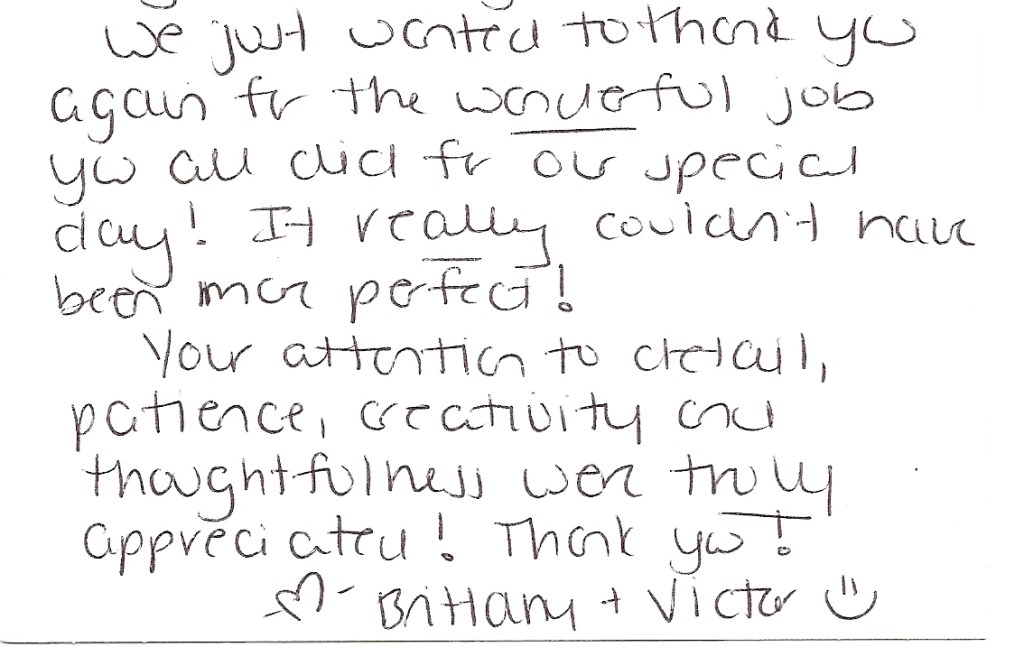 We just wanted to thank you
again for the wonderful job
you all did for our special
day! It really couldn't have
been more perfect!
Your attention to detail,
patience, creativity and
thoughtfulness were truly
appreciated! Thank you!
♡- Brittany + Victor ☺